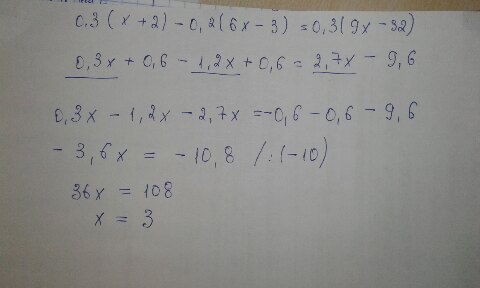 0,3(x+2)-0,2(6x-3)=0,3(9x-32)
0,3x+0,6-1,2x+0,6=2,7x-9,6
0,3x-1,2x-2,7x=-0,6-0,6-9,6
-3,6x=-10,8 /:(-10)
36x=108
x=3